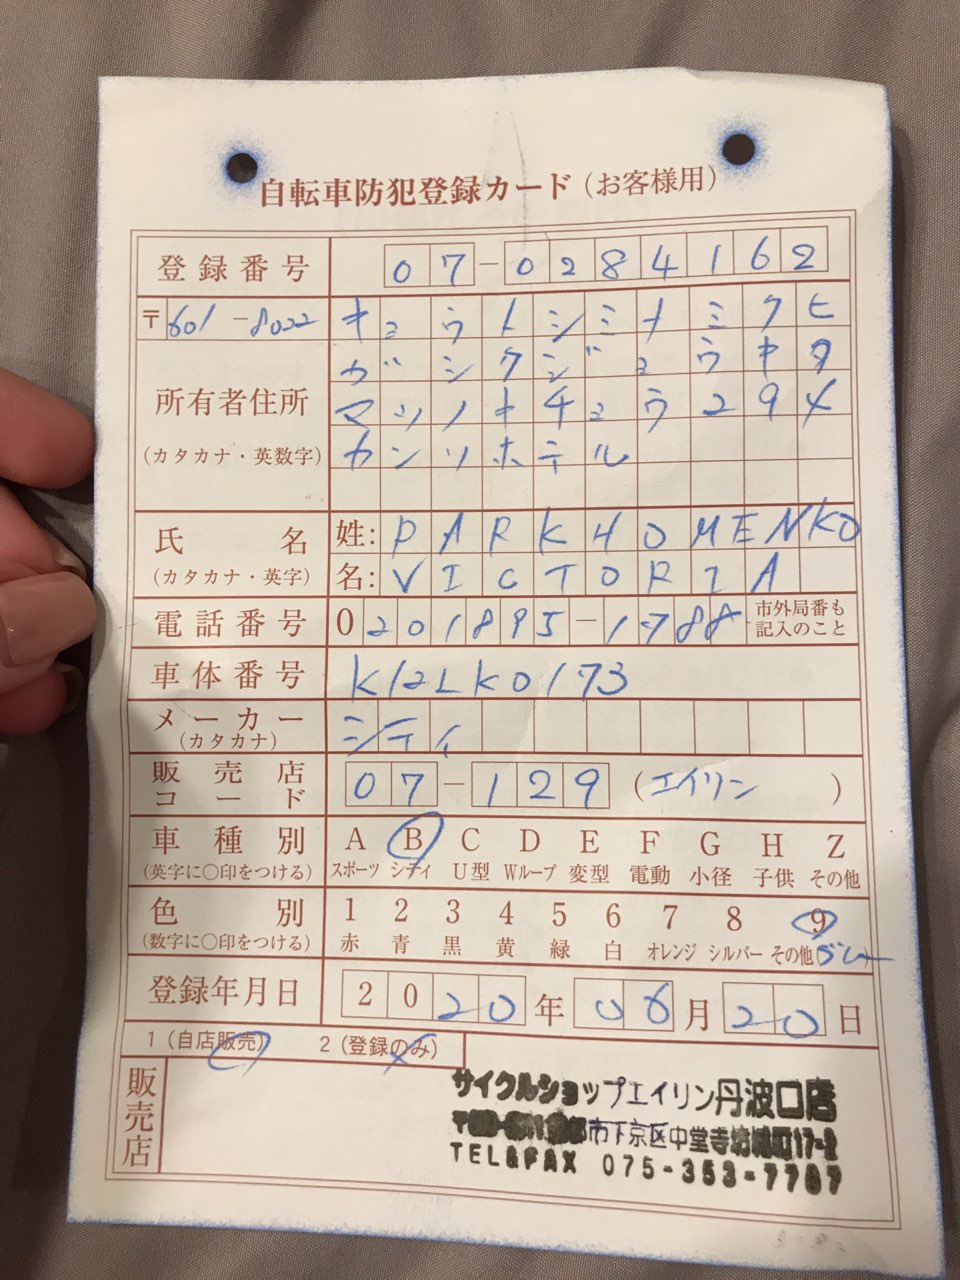 自転車防犯登録カード（お客様用）
登録番号 07-0284162
〒601-8022 キョウトシミナミクヒ
ガシクジョウキタ
所有者住所 マツノキチョウ294
（カタカナ・英数字） カンソホテル
氏名 姓: PARKHOMENKO
（カタカナ・英字） 名: VICTORIA
電話番号 0201895-1788 市外局番も
記入のこと
車体番号 K12LK0173
メーカー シティ
（カタカナ）
販売店
コード 07-129（エイリン）
車種別 A B C D E F G H Z
（英字に〇印をつける） スポーツ シティ U型 Wループ 変型 電動 小径 子供 その他
色別 1 2 3 4 5 6 7 8 9
（数字に〇印をつける） 赤 青 黒 黄 緑 白 オレンジ シルバー その他（グレー
登録年月日 2020年06月20日
1（自店販売） 2（登録のみ）
販売店
サイクルショップエイリン丹波口店
市下京区中堂寺坊城町17-2
TEL&FAX 075-353-7787